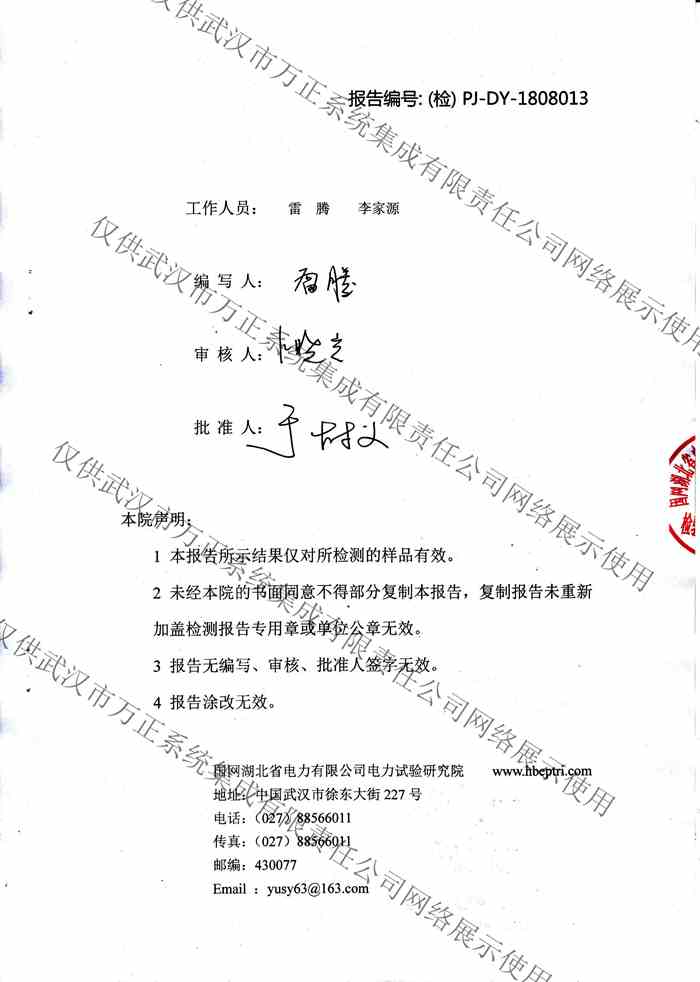 报告编号: (检) PJ-DY-1808013
工作人员： 雷 腾 李家源
编 写 人： 雷腾
审 核 人：
批 准 人：
本院声明：
1 本报告所示结果仅对所检测的样品有效。
2 未经本院的书面同意不得部分复制本报告，复制报告未重新
加盖检测报告专用章或单位公章无效。
3 报告无编写、审核、批准人签字无效。
4 报告涂改无效。
国网湖北省电力有限公司电力试验研究院 www.hbeptri.com
地址：中国武汉市徐东大街 227 号
电话：（027）88566011
传真：（027）88566011
邮编：430077
Email ：yusy63@163.com
仅供武汉市万正系统集成有限责任公司网络展示使用
仅供武汉市万正系统集成有限责任公司网络展示使用
仅供武汉市万正系统集成有限责任公司网络展示使用
仅供武汉市万正系统集成有限责任公司网络展示使用
国网湖北省